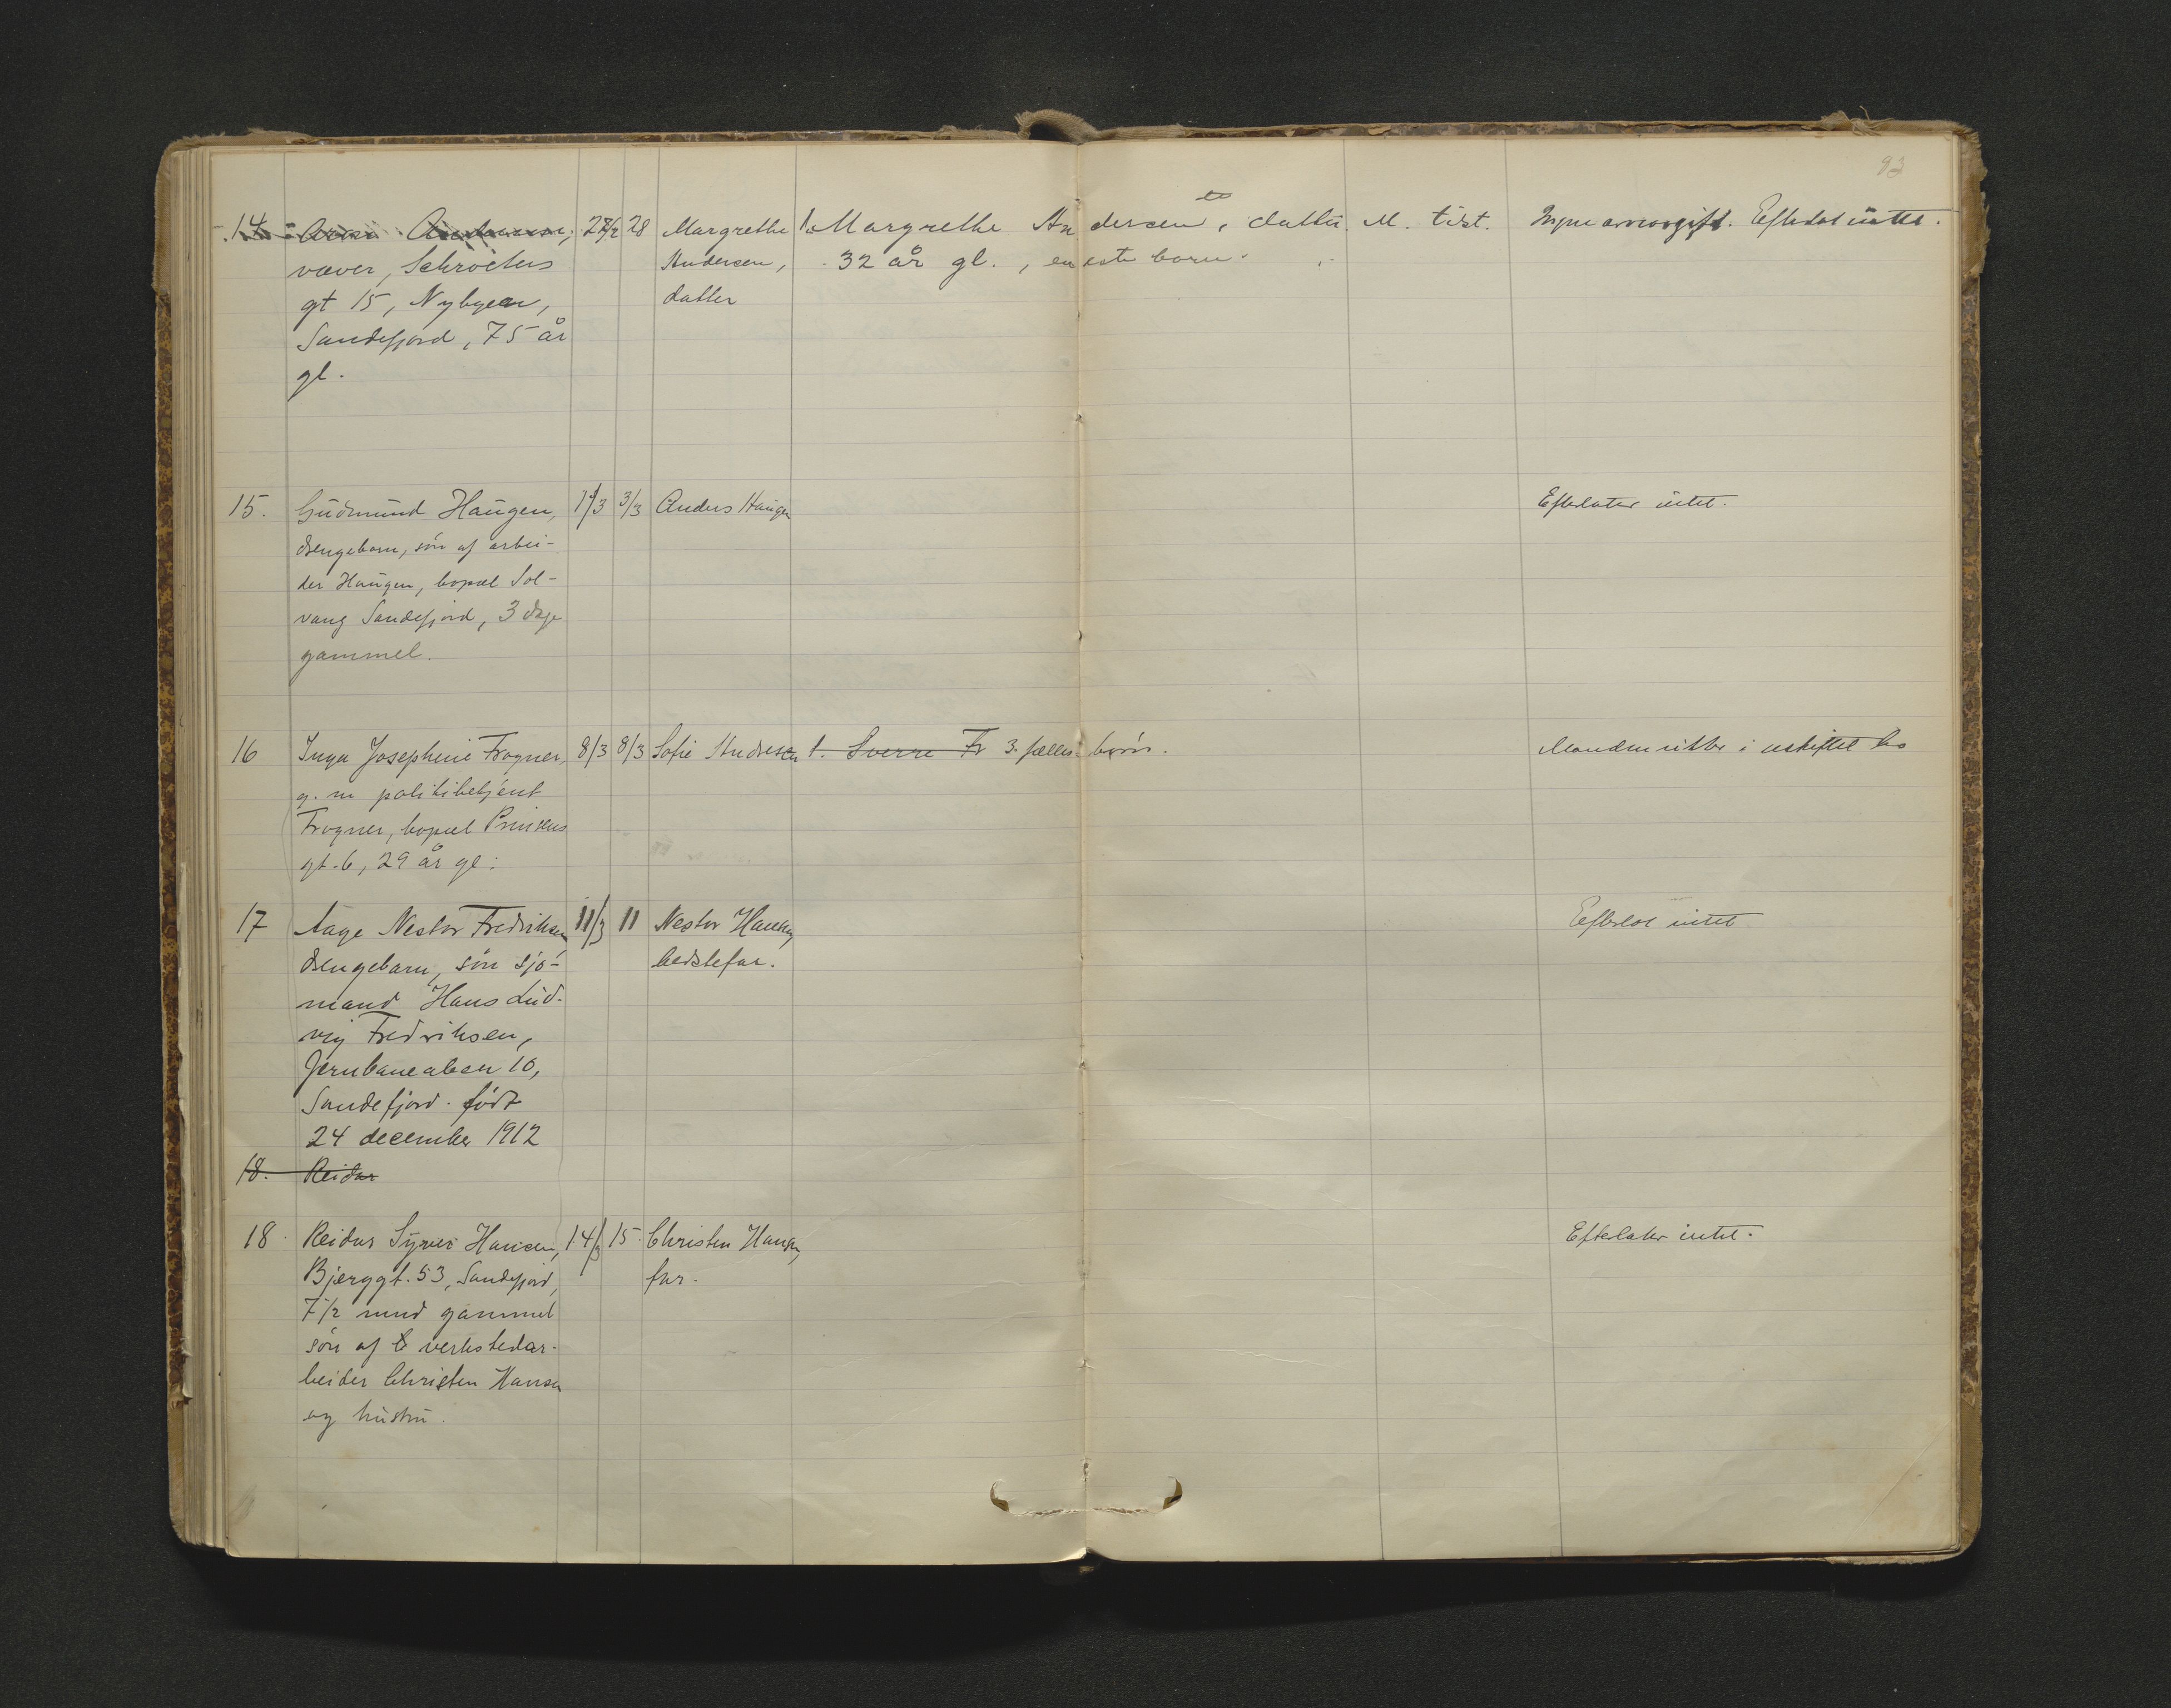 93
14 Arne Andersen, 28/2 28 Margrethe 1. Margrethe Andersen, datter. M. tilst. Ingen arveavgift. Efterlot intet.
væver, Schrøeters Andersen, 32 år gl., eneste barn.
gt 15, Nybyen, datter
Sandefjord, 75 år
gl.
15. Gudmund Haugen, 1/3 3/3 Anders Haugen Efterlater intet.
drengebarn, søn af arbei-
der Haugen, bopæl Sol-
vang Sandefjord, 3 dage
gammel.
16 Inga Josephine Frogner, 8/3 8/3 Sofie Andresen 1. Sverre Fr 3 fælles børn. Manden sitter i uskiftet bo
g. m politibetjent
Frogner, bopæl Prinsens
gt. 6, 29 år gl.
17 Aage Nestor Fredriksen 11/3 11 Nestor Hansen, Efterlot intet
drengebarn, søn sjø- bedstefar.
mand Hans Lud-
vig Fredriksen,
Jernbanealeen 10,
Sandefjord. født
24 december 1912
18. Reidar
18. Reidar Hansen, 14/3 15. Christen Hansen, Efterlater intet.
Bjerggt. 53, Sandefjord, far.
7 1/2 mnd gammel
søn af verkstedar-
beider Christen Hansen
og hustru.